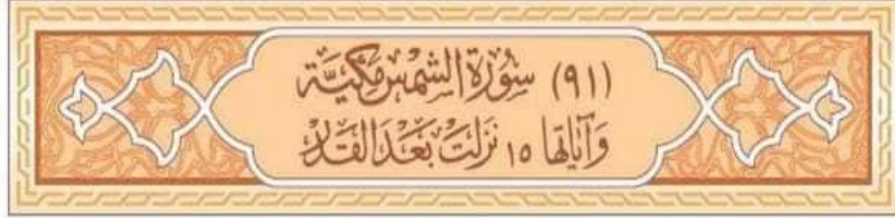 (٩١) سُورَةُ الشَّمْسِ مَكِّيَّة
وَآيَاتُهَا ١٥ نَزَلَتْ بَعْدَ الْقَدْرِ